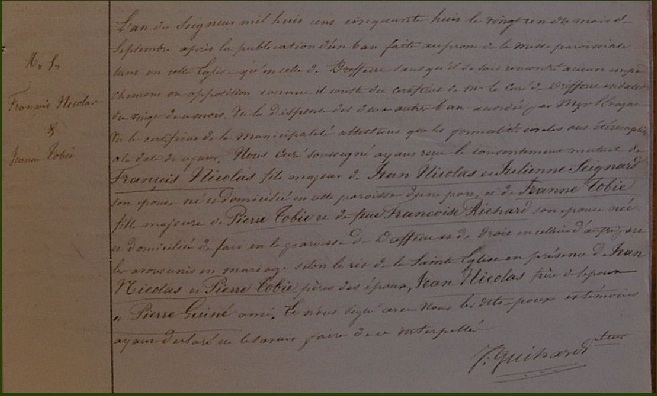 M. S.
François Nicolas
&
Jeanne Tobie
L'an du Seigneur mil huit cent cinquante huit le vingt un du mois de
Septembre après la publication d'un ban faite au prone de la messe paroissiale
tant en cette Eglise qu'en celle de Dreffeac sans qu'il se soit rencontré aucun empê
chement ou opposition comme il conste du certificat de Mr le Curé de Dreffeac en date
du vingt de ce mois. Vu la dispense des deux autres ban accordée par
Vu le certificat de la municipalité attestant que les formalités civiles ont été remplies
à la date de ce jour, Nous Curé soussigné avons reçu le consentement mutuel de
François Nicolas fils majeur de Jean Nicolas et Julienne Seignard
son épouse né et domicilié en cette paroisse d'une part, et de Jeanne Tobie
fille majeure de Pierre Tobie et de feue Françoise Richard son épouse née
et domiciliée de fait en la paroisse de Dreffeac et de droit en celle-ci d'autre part
les avons unis en mariage selon le rit de la Sainte Eglise en présence de Jean
Nicolas et Pierre Tobie pères des époux, Jean Nicolas frère de l'époux
et Pierre Guiné ami. Le nous signé avec nous les dits époux et témoins
ayant déclaré ne le savoir faire de ce interpellé
J. Guihard